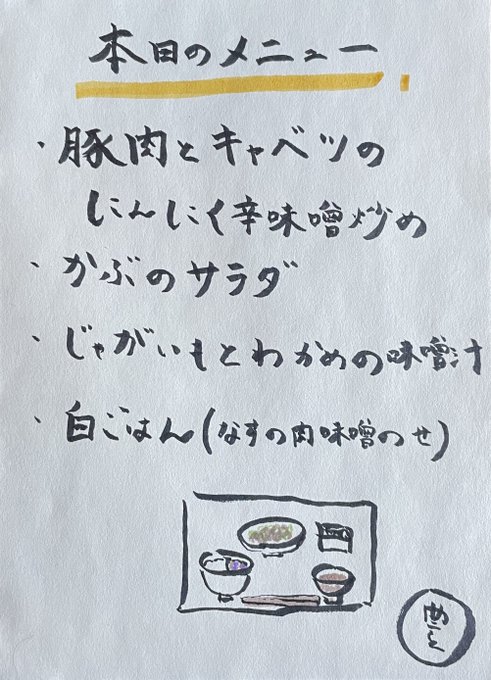 本日のメニュー
・豚肉とキャベツの
にんにく辛味噌炒め
・かぶのサラダ
・じゃがいもとわかめの味噌汁
・白ごはん(なすの肉味噌のせ)